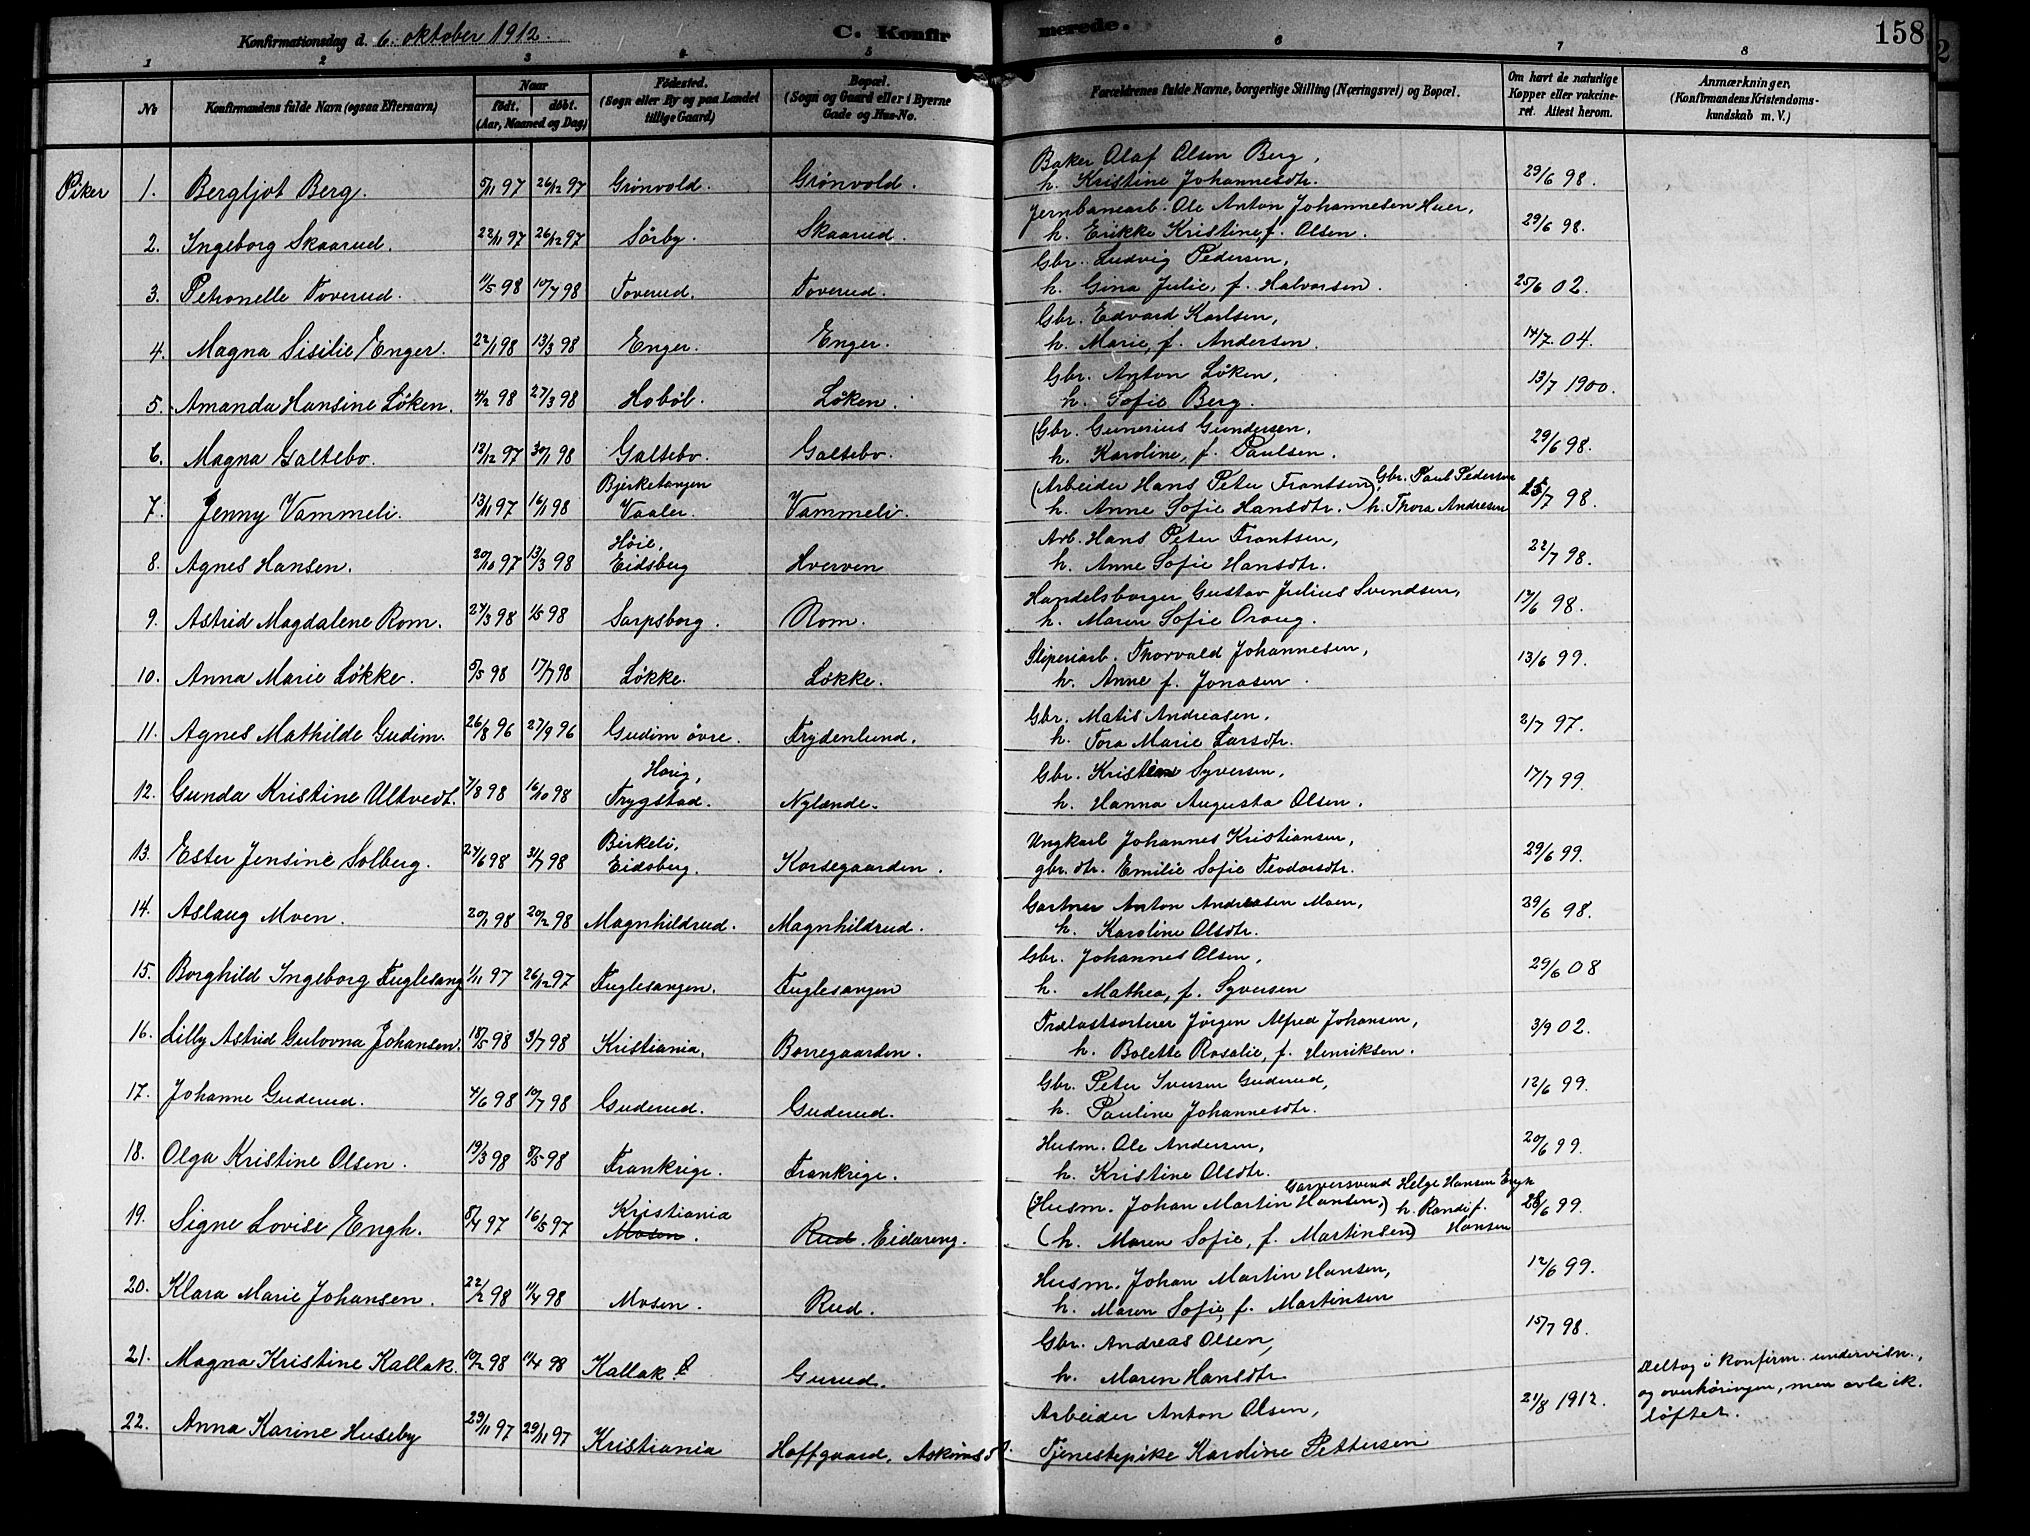 Konfirmationsdag d. 6. oktober 1912. C. Konfirmerede. 158
1 2 3 4 5 6 7 8
No
Konfirmandens fulde Navn (ogsaa Efternavn)
Naar
født. døbt.
(Aar, Maaned og Dag)
Fødested.
(Sogn eller By og paa Landet tillige Gaard)
Bopæl.
(Sogn og Gaard eller i Byerne Gade og Hus-No.
Forældrenes fulde Navne, borgerlige Stilling (Næringsvei) og Bopæl.
Om havt de naturlige Kopper eller vakcineret. Attest herom.
Anmærkninger.
(Konfirmandens Kristendomskundskab m. V.)
Piker 1. Bergljot Berg. 5/11 97 26/12 97 Grønvold. Grønvold. Baker Olaf Olsen Berg, 29/6 98.
h. Kristine Johannesdtr.
2. Ingeborg Skaarud. 22/11 97 26/12 97 Sørby. Skaarud. Jernbanearb. Ole Anton Johannesen Huer, 29/6 98.
h. Erikke Kristine, f. Olsen.
3. Petronelle Toverud. 11/5 98 10/7 98 Toverud. Toverud. Gbr. Ludvig Pedersen, 25/6 02.
h. Gina Julie, f. Halvorsen.
4. Magna Sisilie Enger. 22/1 98 13/3 98 Enger. Enger. Gbr. Edvard Karlsen, 14/7 04.
h. Marie, f. Andersen.
5. Amanda Hansine Løken. 4/2 98 27/3 98 Hobøl. Løken. Gbr. Anton Løken, 13/7 1900.
h. Sofie Berg.
6. Magna Galtebo. 12/12 97 30/1 98 Galtebo. Galtebo. (Gbr. Gunerius Gundersen, 29/6 98.
h. Karoline, f. Paulsen.
7. Jenny Vammeli. 13/11 97 16/1 98 Bjerketangen Vaaler. Vammeli. (Arbeider Hans Peter Frantsen) Gbr. Paul Pedersen 15/7 98.
h. Anne Sofie Hansdtr.) h. Thora Andresen
8. Agnes Hansen. 20/10 97 13/3 98 Høie, Eidsberg Hverven Arb. Hans Peter Frantsen, 22/7 98.
h. Anne Sofie Hansdtr.
9. Astrid Magdalene Rom. 24/3 98 1/5 98 Sarpsborg. Rom. Handelsborger Gustav Julius Svendsen, 17/6 98.
h. Maren Sofie Oraug.
10. Anna Marie Løkke. 5/5 98 17/7 98 Løkke. Løkke. Sliperiarb. Thorvald Johannesen, 13/6 99.
h. Anne f. Jonasen.
11. Agnes Mathilde Gudim. 26/8 96 27/9 96 Gudim øvre. Frydenlund. Gbr. Matis Andreasen, 2/7 97.
h. Tora Marie Larsdtr.
12. Gunda Kristine Ultvedt. 7/8 98 16/10 98 Trygstad. Nylænde. Gbr. Kristian Syversen, 17/7 99.
h. Hanna Augusta Olsen.
13. Ester Jensine Solberg. 24/6 98 31/7 98 Birkeli, Eidsberg. Korsegaarden. Ungkarl Johannes Kristiansen, 29/6 99.
gbr. dtr. Emilie Sofie Teodorsdtr.
14. Aslaug Moen. 20/1 98 20/2 98 Magnhildrud. Magnhildrud. Gartner Anton Andreasen Moen, 29/6 98.
h. Karoline Olsdtr.
15. Borghild Ingeborg Fuglesang 1/11 97 26/12 97 Fuglesangen. Fuglesangen Gbr. Johannes Olsen, 29/6 08
h. Mathea, f. Syversen
16. Lilly Astrid Gulovna Johansen. 18/5 98 3/7 98 Kristiania. Borregaarden. Trælastsorterer Jørgen Alfred Johansen, 3/9 02.
h. Bolette Rosalie, f. Henriksen.
17. Johanne Guderud. 4/6 98 10/7 98 Guderud. Guderud. Gbr. Peter Iversen Guderud, 12/6 99.
h. Pauline Johannesdtr.
18. Olga Kristine Olsen. 19/3 98 8/5 98 Frankrige. Frankrige. Husm. Ole Andersen, 20/6 99.
h. Kristine Olsdtr.
19. Signe Lovise Engh. 8/4 97 16/5 97 Kristiania Mosen. Rud. Eidareng. (Husm. Johan Martin Hansen,) Garversvend Helge Hansen Engh h. Randi f. Hansen 28/6 99.
(h. Maren Sofie, f. Martinsen)
20. Klara Marie Johansen. 22/2 98 11/4 98 Mosen. Rud. Husm. Johan Martin Hansen, 12/6 99.
h. Maren Sofie, f. Martinsen
21. Magna Kristine Kallak. 10/2 98 11/4 98 Kallak Gurud. Gbr. Andreas Olsen, 15/7 98.
h. Maren Hansdtr.
22. Anna Karine Huseby 29/11 97 29/11 97 Kristiania Hoffgaard, Askims Arbeider Anton Olsen, 21/8 1912.
Tjenestepike Karoline Pettersen
Deltog i konfirm. undervisn., og overhøringen, men avla ik. løftet.